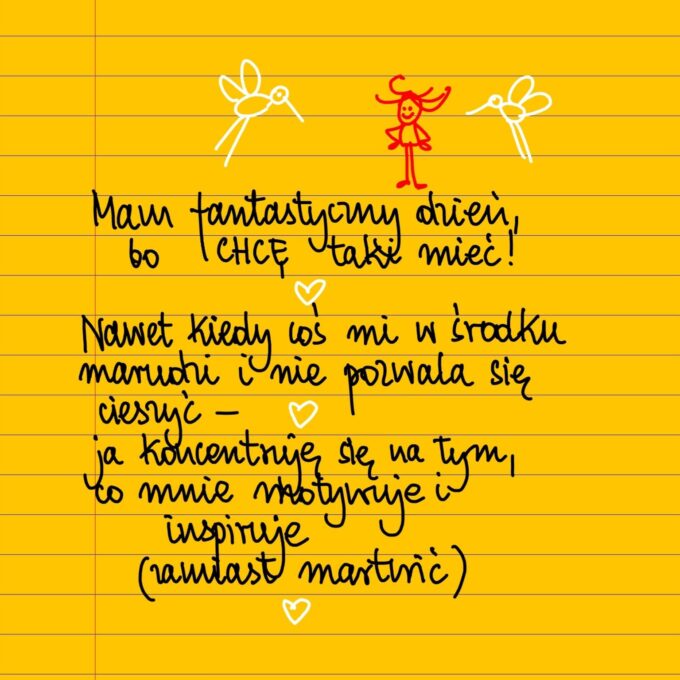 Mam fantastyczny dzień,
bo CHCĘ taki mieć!
Nawet kiedy coś mi w środku
marudzi i nie pozwala się
cieszyć –
ja koncentruję się na tym,
co mnie motywuje i
inspiruje
(zamiast martwić)